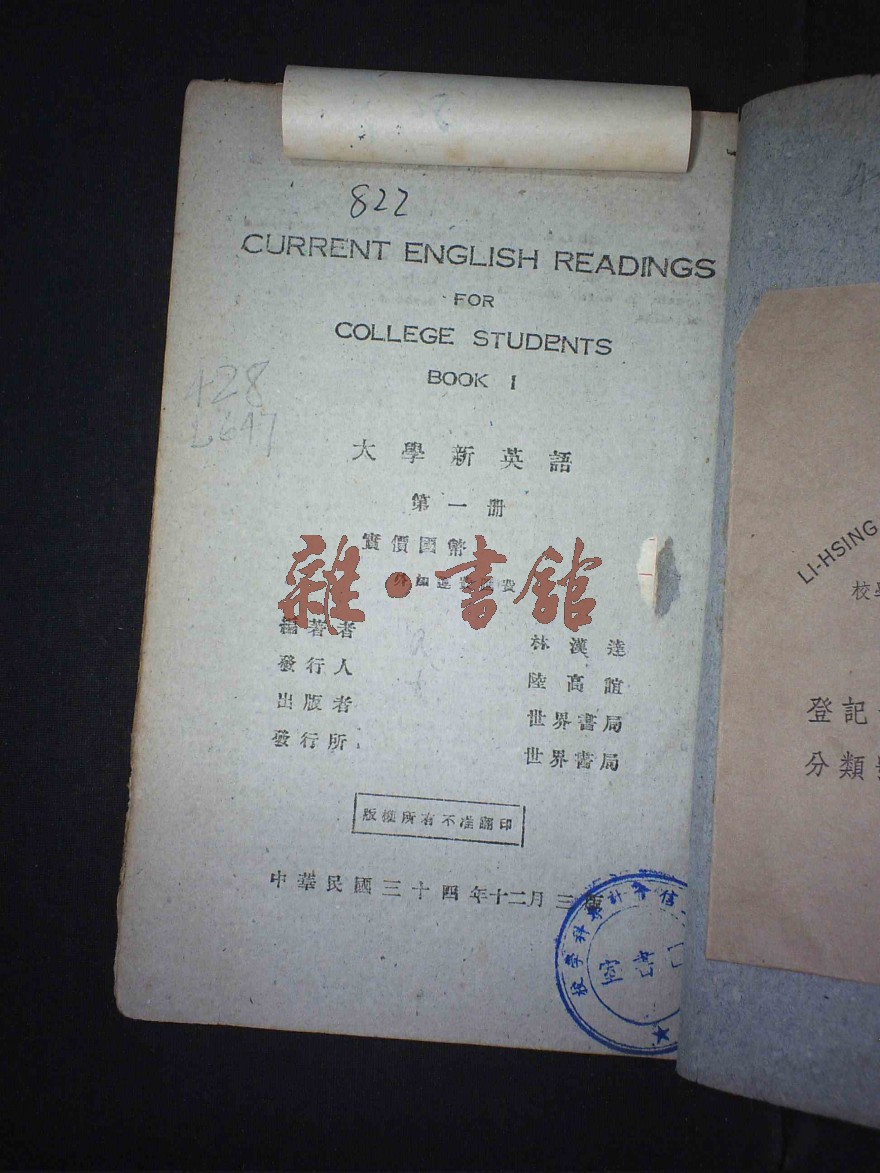 822
CURRENT ENGLISH READINGS
FOR
COLLEGE STUDENTS
BOOK I
428
大學新英語
第一册
實價國幣
雜·書館
編著者 林漢達
發行人 陸高誼
出版者 世界書局
發行所 世界書局
版權所有不准翻印
中華民國三十四年十二月三版
信會計專科學校
書室
LI-HSING
校
登記
分類